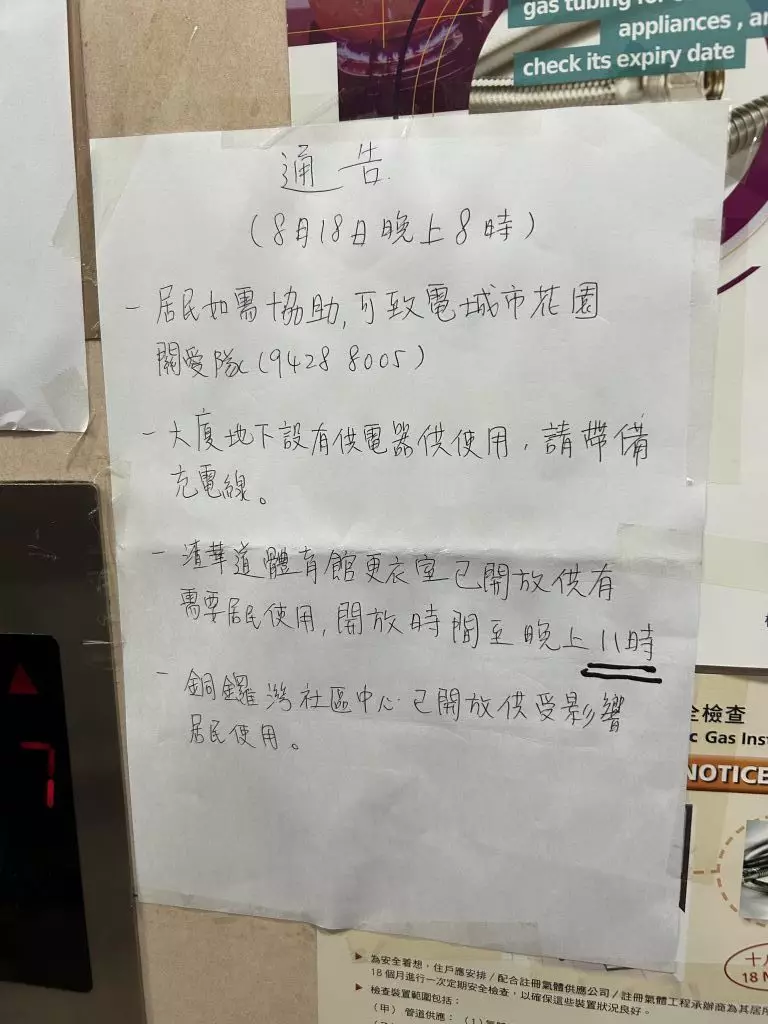 gas tubing for
appliances, an
check its expiry date
通告
(8月18日晚上8時)
- 居民如需協助,可致電城市花園
關愛隊(9428 8005)
- 大廈地下設有供電器供使用,請帶備
充電線。
- 渣華道體育館更衣室已開放供有
需要居民使用,開放時間至晚上11時
- 銅鑼灣社區中心已開放供受影響
居民使用。
7
全檢查
c Gas Inst
NOTICE
▶ 為安全着想,住戶應安排/配合註冊氣體供應公司/註冊氣體工程承辦商為其居所
18個月進行一次定期安全檢查,以確保這些裝置狀況良好。
▶ 檢查裝置範圍包括:
(甲) 管道供應:(1)
十八
18 M